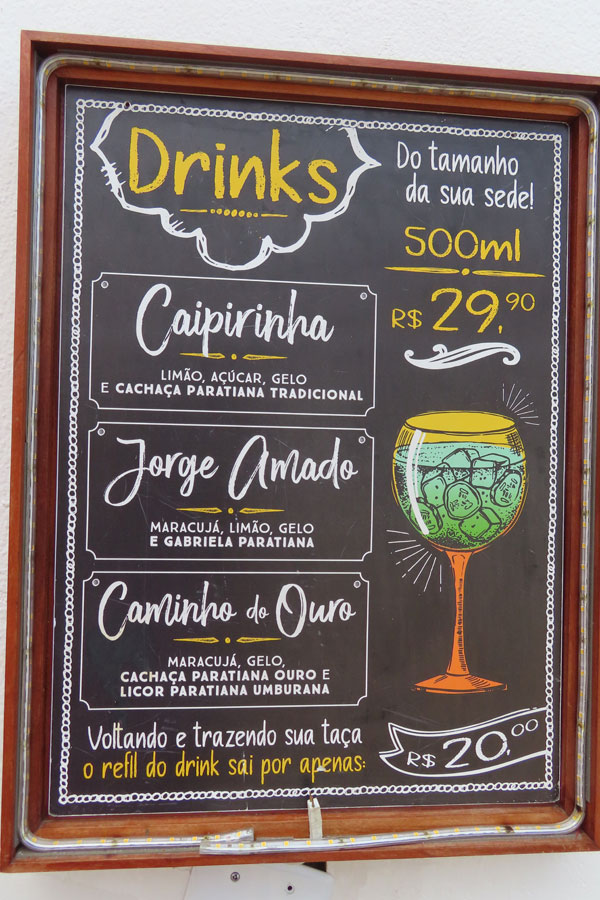 Drinks
Do tamanho
da sua sede!
500ml
R$ 29,90
Caipirinha
LIMÃO, AÇÚCAR, GELO
E CACHAÇA PARATIANA TRADICIONAL
Jorge Amado
MARACUJÁ, LIMÃO, GELO
E GABRIELA PARATIANA
Caminho do Ouro
MARACUJÁ, GELO,
CACHAÇA PARATIANA OURO E
LICOR PARATIANA UMBURANA
Voltando e trazendo sua taça
o refll do drink sai por apenas:
R$ 20,00